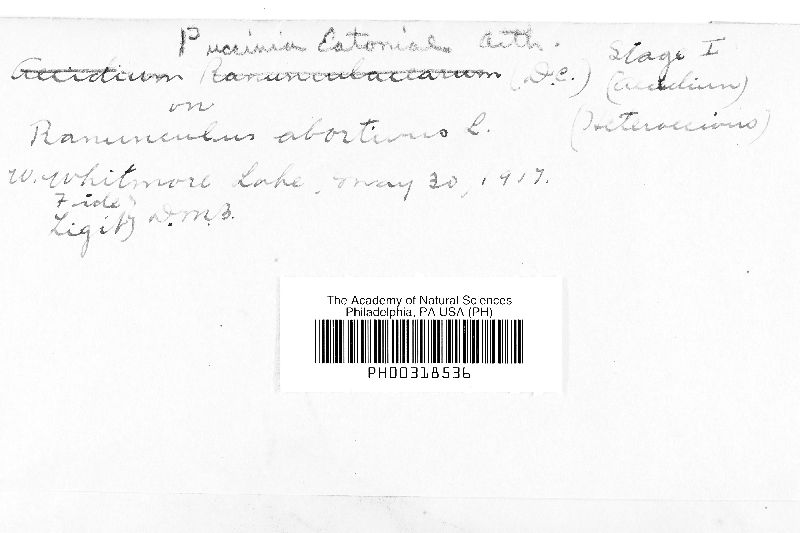 Puccinia Eatoniae Arth.
Stage I
Aecidium Ranunculacearum (D.C.)
(Aecidium)
on
Ranunculus abortivus L.
(Heteroecious)
W. Whitmore Lake, May 30, 1917.
Fide
Legit } D.M.B.
The Academy of Natural Sciences
Philadelphia, PA USA (PH)
PH00318536